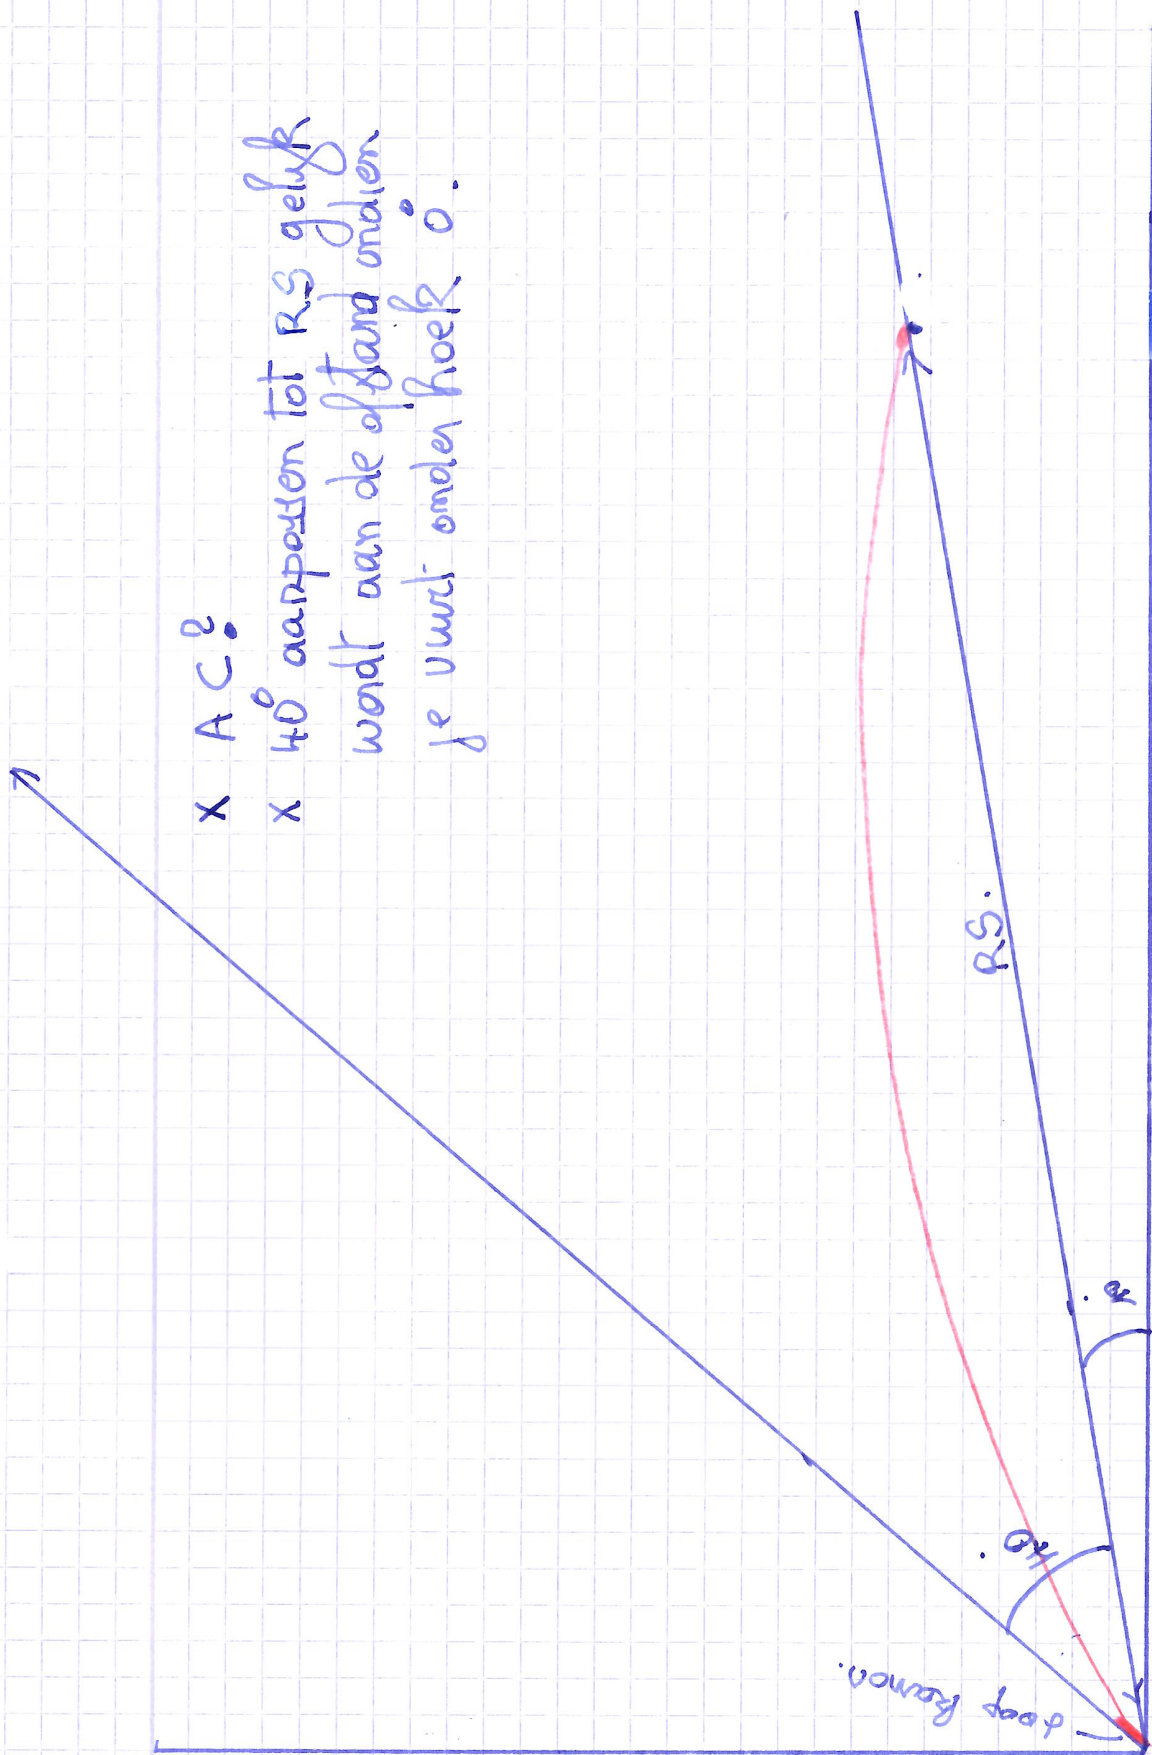 x AC?
x 40° aanpassen tot RS gelijk
wordt aan de afstand indien
je vuurt onder hoek 0°.
RS.
loop kanon.